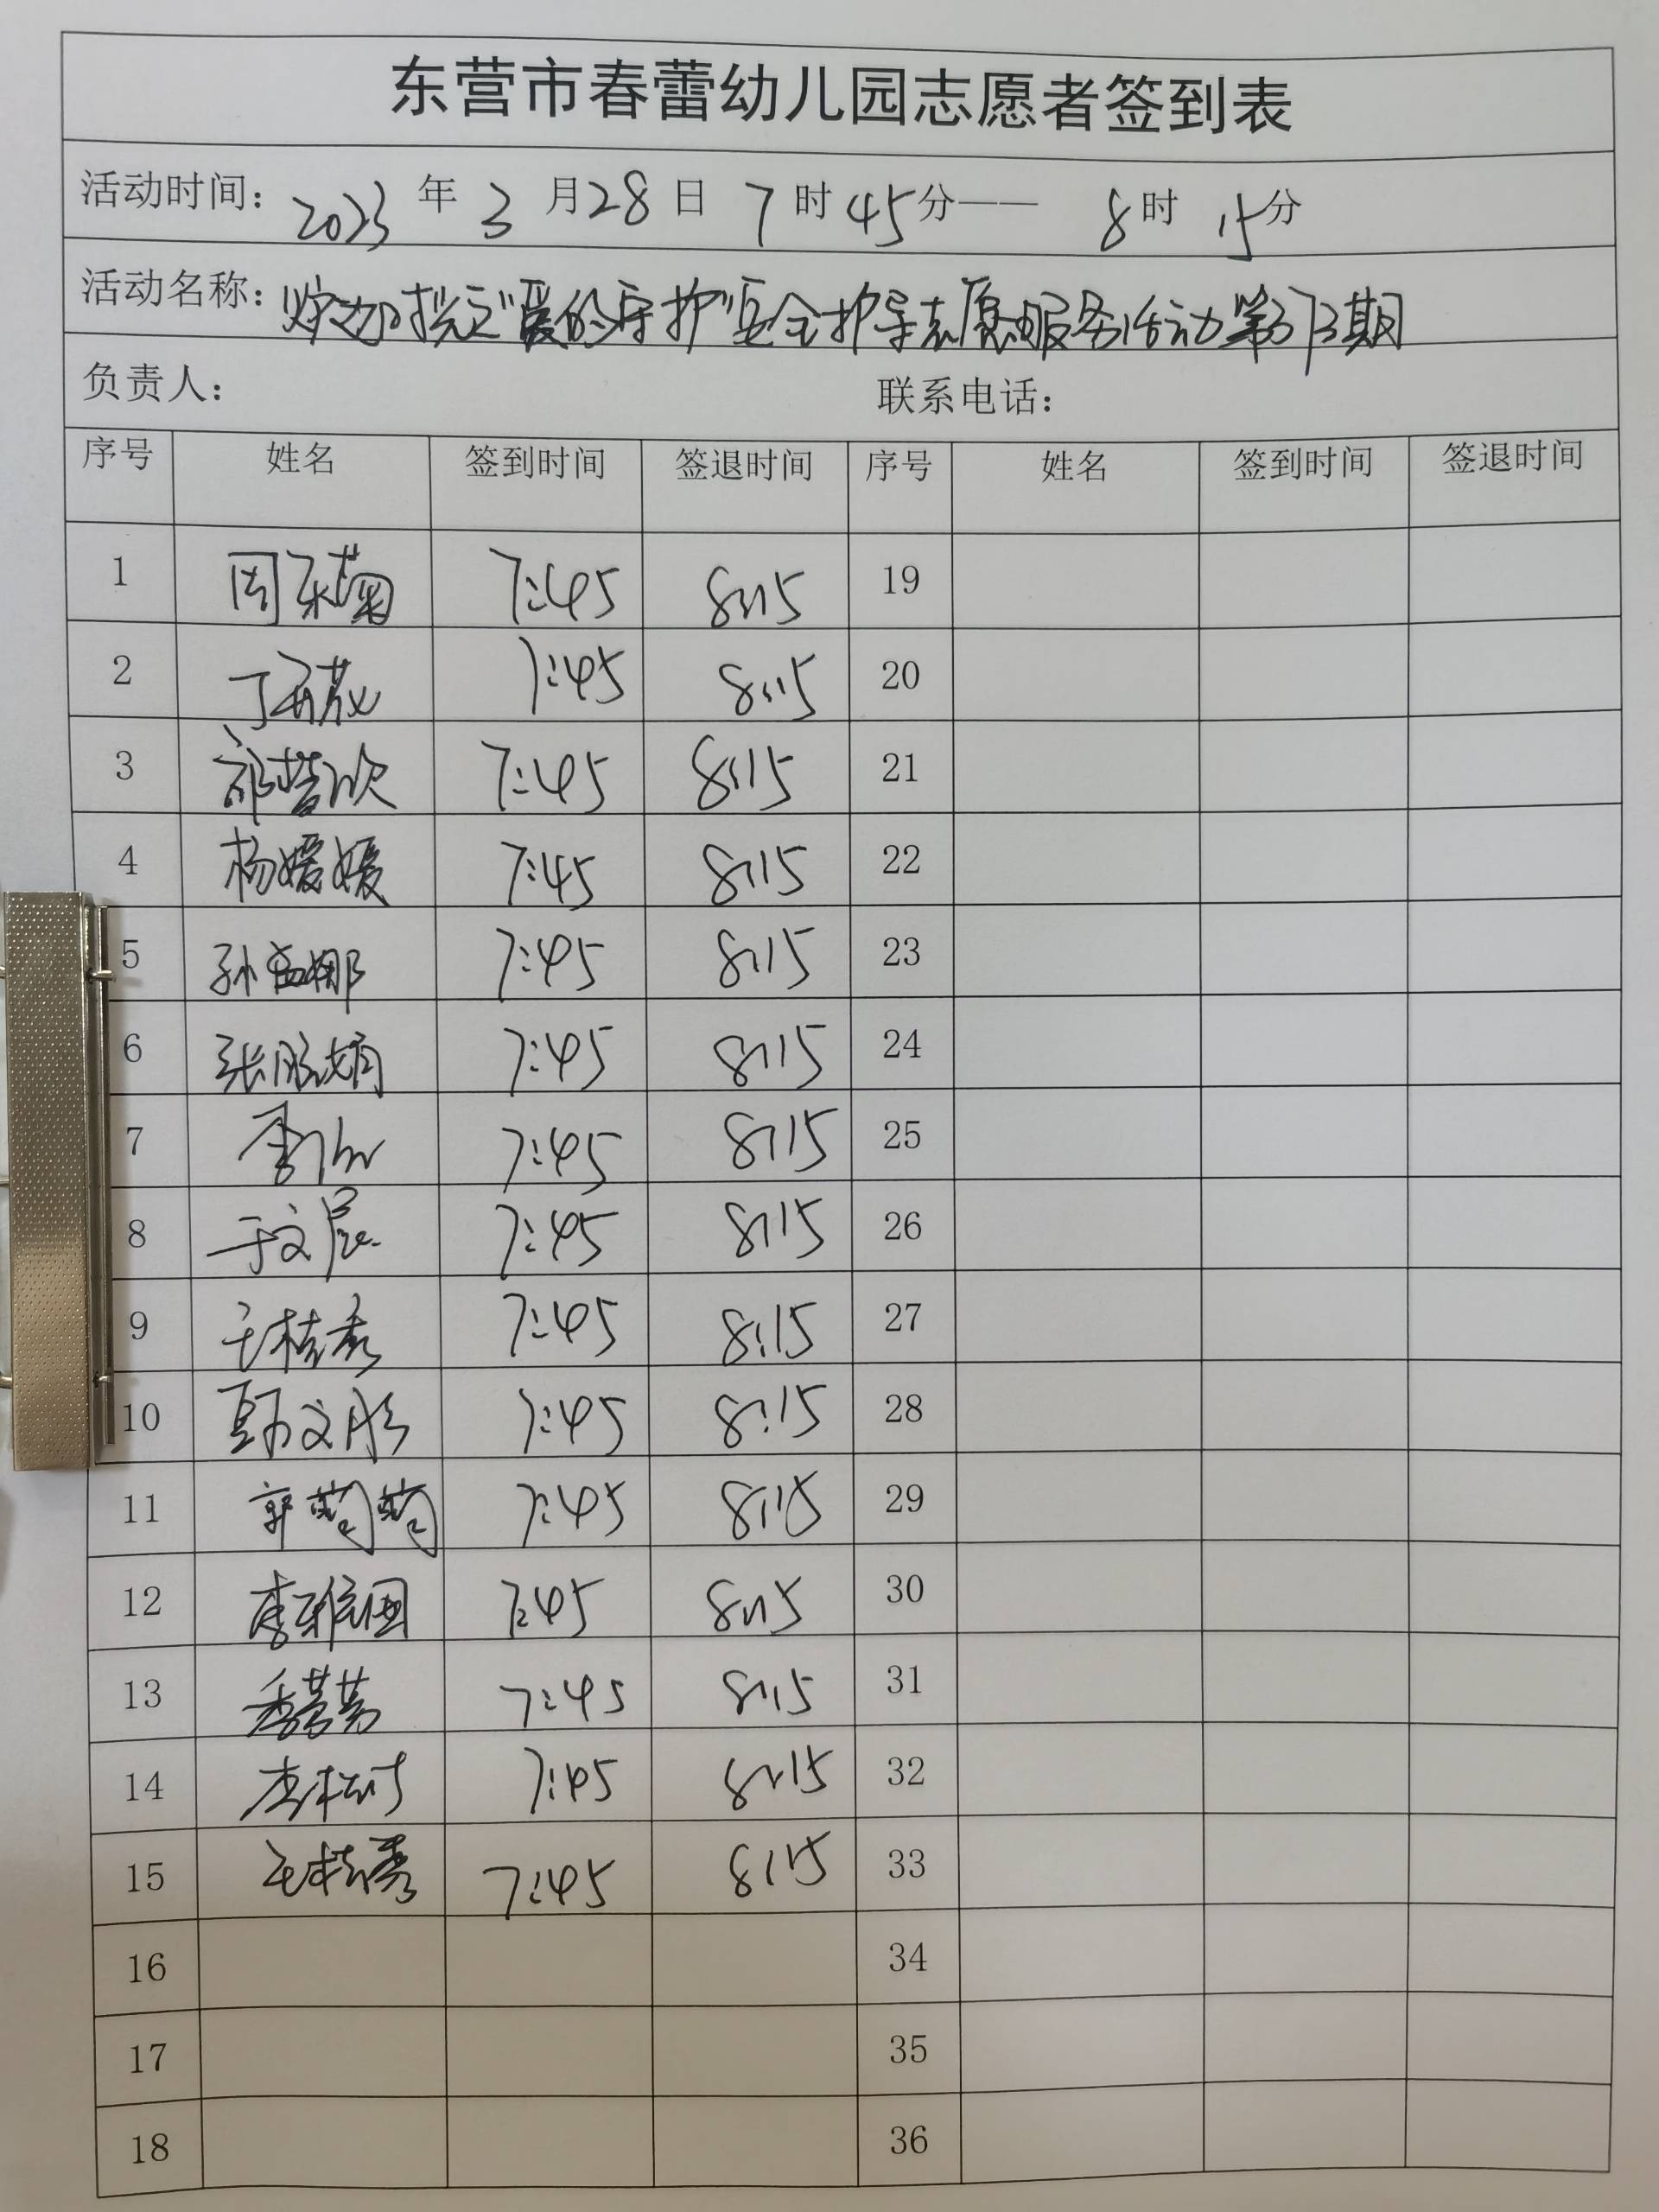 东营市春蕾幼儿园志愿者签到表
活动时间: 2023 年 3 月 28 日 7 时 45 分—— 8 时 15 分
活动名称: "爱的守护"安全护导志愿服务活动第373期
负责人: 联系电话:
序号 姓名 签到时间 签退时间 序号 姓名 签到时间 签退时间
1 周乐菊 7:45 8:15 19
2 丁 7:45 8:15 20
3 7:45 8:15 21
4 杨媛媛 7:45 8:15 22
5 孙孟娜 7:45 8:15 23
6 张 7:45 8:15 24
7 李 7:45 8:15 25
8 于文晨 7:45 8:15 26
9 王桂秀 7:45 8:15 27
10 韩文彤 7:45 8:15 28
11 郭萄萄 7:45 8:15 29
12 李雅囡 7:45 8:15 30
13 季芳芳 7:45 8:15 31
14 李 7:45 8:15 32
15 王桂秀 7:45 8:15 33
16 34
17 35
18 36